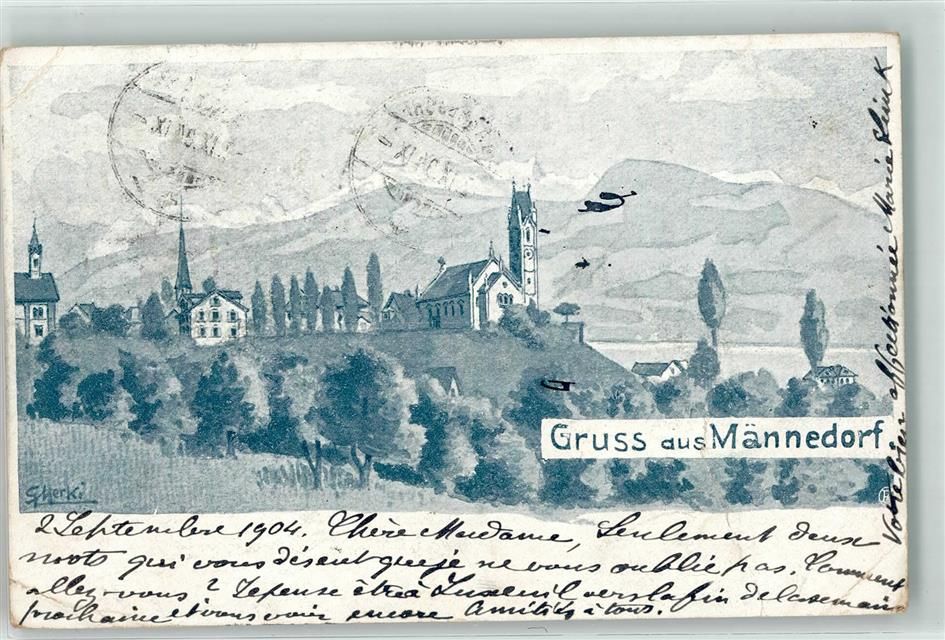 Gruss aus Männedorf
G Merki
2 Septembre 1904. Chère Madame, Seulement deux
mots qui vous disent que je ne vous oublie pas. Comment
allez-vous ? Je pense être à Luxeuil vers la fin de la semaine
prochaine et vous voir encore Amitiés à tous.
Votre bien affectionnée Marie